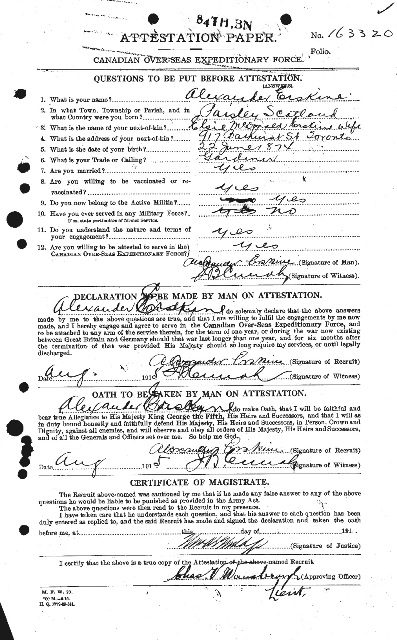 84TH.BN
ATTESTATION PAPER.
No. 163320
Folio.
CANADIAN OVER-SEAS EXPEDITIONARY FORCE.
QUESTIONS TO BE PUT BEFORE ATTESTATION.
1. What is your name? Alexander Erskine
2. In what Town, Township or Parish, and in what Country were you born? Paisley Scotland
3. What is the name of your next-of-kin? Erskine Wife
4. What is the address of your next-of-kin? 917 Bathurst St Toronto
5. What is the date of your birth? 22 June 1874
6. What is your Trade or Calling? Gardiner
7. Are you married? Yes
8. Are you willing to be vaccinated or re-vaccinated? Yes
9. Do you now belong to the Active Militia? Yes
10. Have you ever served in any Military Force? No
If so, state particulars of former Service.
11. Do you understand the nature and terms of your engagement? Yes
12. Are you willing to be attested to serve in the CANADIAN OVER-SEAS EXPEDITIONARY FORCE? Yes
Alexander Erskine (Signature of Man).
(Signature of Witness).
DECLARATION TO BE MADE BY MAN ON ATTESTATION.
Alexander Erskine, do solemnly declare that the above answers
made by me to the above questions are true, and that I am willing to fulfil the engagements by me now
made, and I hereby engage and agree to serve in the Canadian Over-Seas Expeditionary Force, and
to be attached to any arm of the service therein, for the term of one year, or during the war now existing
between Great Britain and Germany should that war last longer than one year, and for six months after
the termination of that war provided His Majesty should so long require my services, or until legally
discharged.
Alexander Erskine (Signature of Recruit)
Date Aug 191 (Signature of Witness)
OATH TO BE TAKEN BY MAN ON ATTESTATION.
Alexander Erskine, do make Oath, that I will be faithful and
bear true Allegiance to His Majesty King George the Fifth, His Heirs and Successors, and that I will as
in duty bound honestly and faithfully defend His Majesty, His Heirs and Successors, in Person, Crown and
Dignity, against all enemies, and will observe and obey all orders of His Majesty, His Heirs and Successors,
and of all the Generals and Officers set over me. So help me God.
Alexander Erskine (Signature of Recruit)
Date Aug 191 (Signature of Witness)
CERTIFICATE OF MAGISTRATE.
The Recruit above-named was cautioned by me that if he made any false answer to any of the above
questions he would be liable to be punished as provided in the Army Act.
The above questions were then read to the Recruit in my presence.
I have taken care that he understands each question, and that his answer to each question has been
duly entered as replied to, and the said Recruit has made and signed the declaration and taken the oath
before me, at this day of 191
(Signature of Justice)
I certify that the above is a true copy of the Attestation of the above-named Recruit.
(Approving Officer)
Lieut.
M. F. W. 23.